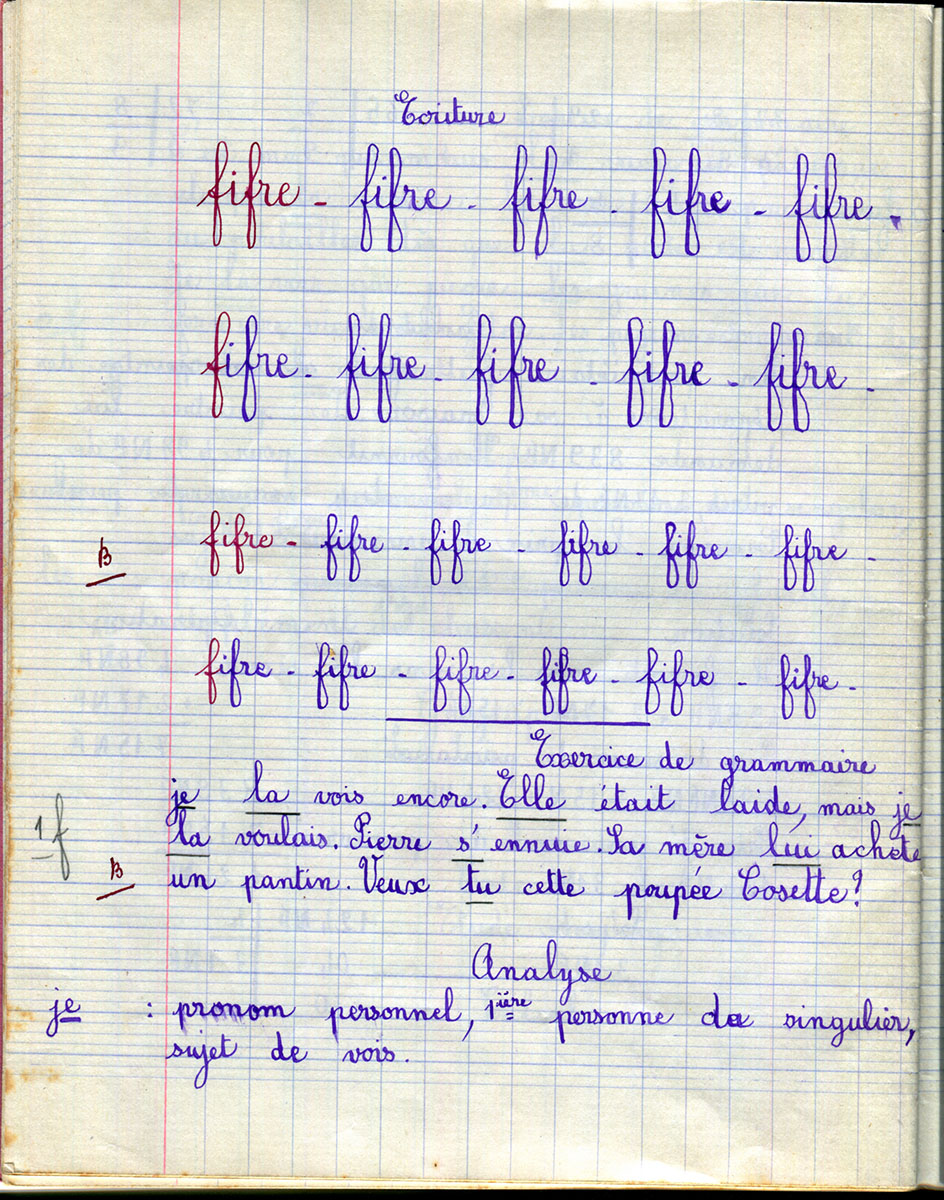 Ecriture
fifre - fifre - fifre - fifre - fifre.
fifre - fifre - fifre - fifre - fifre -
B fifre - fifre - fifre - fifre - fifre - fifre -
fifre - fifre - fifre - fifre - fifre - fifre -
Exercice de grammaire
je la vois encore. Elle était laide, mais je
1 f la voulais. Pierre s'ennuie. Sa mère lui achète
B un pantin. Veux tu cette poupée Cosette?
Analyse
je : pronom personnel, 1ière personne du singulier,
sujet de vois.